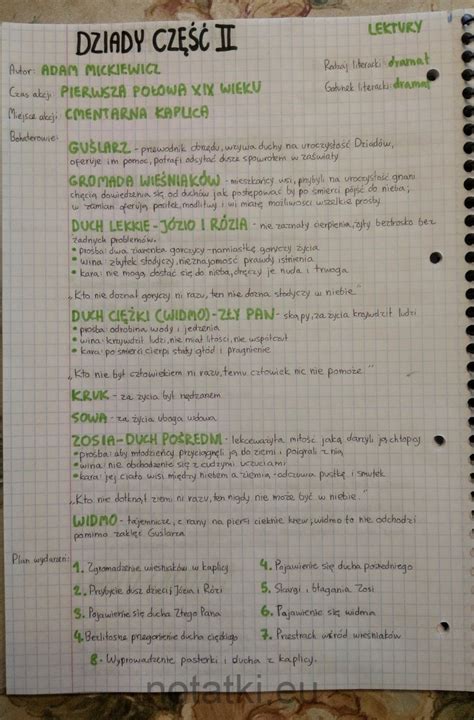 DZIADY CZĘŚĆ II
LEKTURY
Autor: ADAM MICKIEWICZ
Rodzaj literacki: dramat
Czas akcji: PIERWSZA POŁOWA XIX WIEKU
Gatunek literacki: dramat
Miejsce akcji: CMENTARNA KAPLICA
Bohaterowie:
GUŚLARZ - przewodnik obrzędu, wzywa duchy na uroczystość Dziadów,
oferuje im pomoc, potrafi odsyłać dusze spowrotem w zaświaty
GROMADA WIEŚNIAKÓW - mieszkańcy wsi, przybyli na uroczystość gnani
chęcią dowiedzenia się od duchów jak postępować by po śmierci pójść do nieba,
w zamian oferują posiłek, modlitwy i w miarę możliwości wszelkie prośby
DUCH LEKKIE - JÓZIO I RÓZIA - nie zaznały cierpienia, żyły beztrosko bez
żadnych problemów.
• prośba: dwa ziarenka gorczycy - namiastkę goryczy życia
• wina: zbytek słodyczy, nieznajomość prawdy istnienia
• kara: nie mogą dostać się do nieba, dręczy je nuda i trwoga
„Kto nie doznał goryczy ni razu, ten nie dozna słodyczy w niebie."
DUCH CIĘŻKI (WIDMO) - ZŁY PAN - skąpy, za życia krzywdził ludzi
• prośba: odrobina wody i jedzenia
• wina: krzywdził ludzi, nie miał litości, nie współczuł
• kara: po śmierci cierpi stały głód i pragnienie
„Kto nie był człowiekiem ni razu, temu człowiek nic nie pomoże."
KRUK - za życia był nędzarzem
SOWA - za życia uboga wdowa
ZOSIA - DUCH POŚREDNI - lekceważyła miłość jaką darzyli ją chłopcy
• prośba: aby młodzieńcy przyciągnęli ją do ziemi i poigrali z nią
• wina: nie obchodzenie się z cudzymi uczuciami
• kara: jej ciało wisi między niebem a ziemią - odczuwa pustkę i smutek
„Kto nie dotknął ziemi ni razu, ten nigdy nie może być w niebie."
WIDMO - tajemnicze, z rany na piersi cieknie krew, widmo to nie odchodzi
pomimo zaklęć Guślarza
Plan wydarzeń:
1. Zgromadzenie wieśniaków w kaplicy
4. Pojawienie się ducha pośredniego
2. Przybycie dusz dzieci; Józia i Rózi
5. Skargi i błagania Zosi
3. Pojawienie się ducha Złego Pana
6. Pojawienie się widma
4. Bezlitosne przegonienie ducha ciężkiego
7. Przestrach wśród wieśniaków
8. Wyprowadzenie pasterki i ducha z kaplicy.
notatki.eu